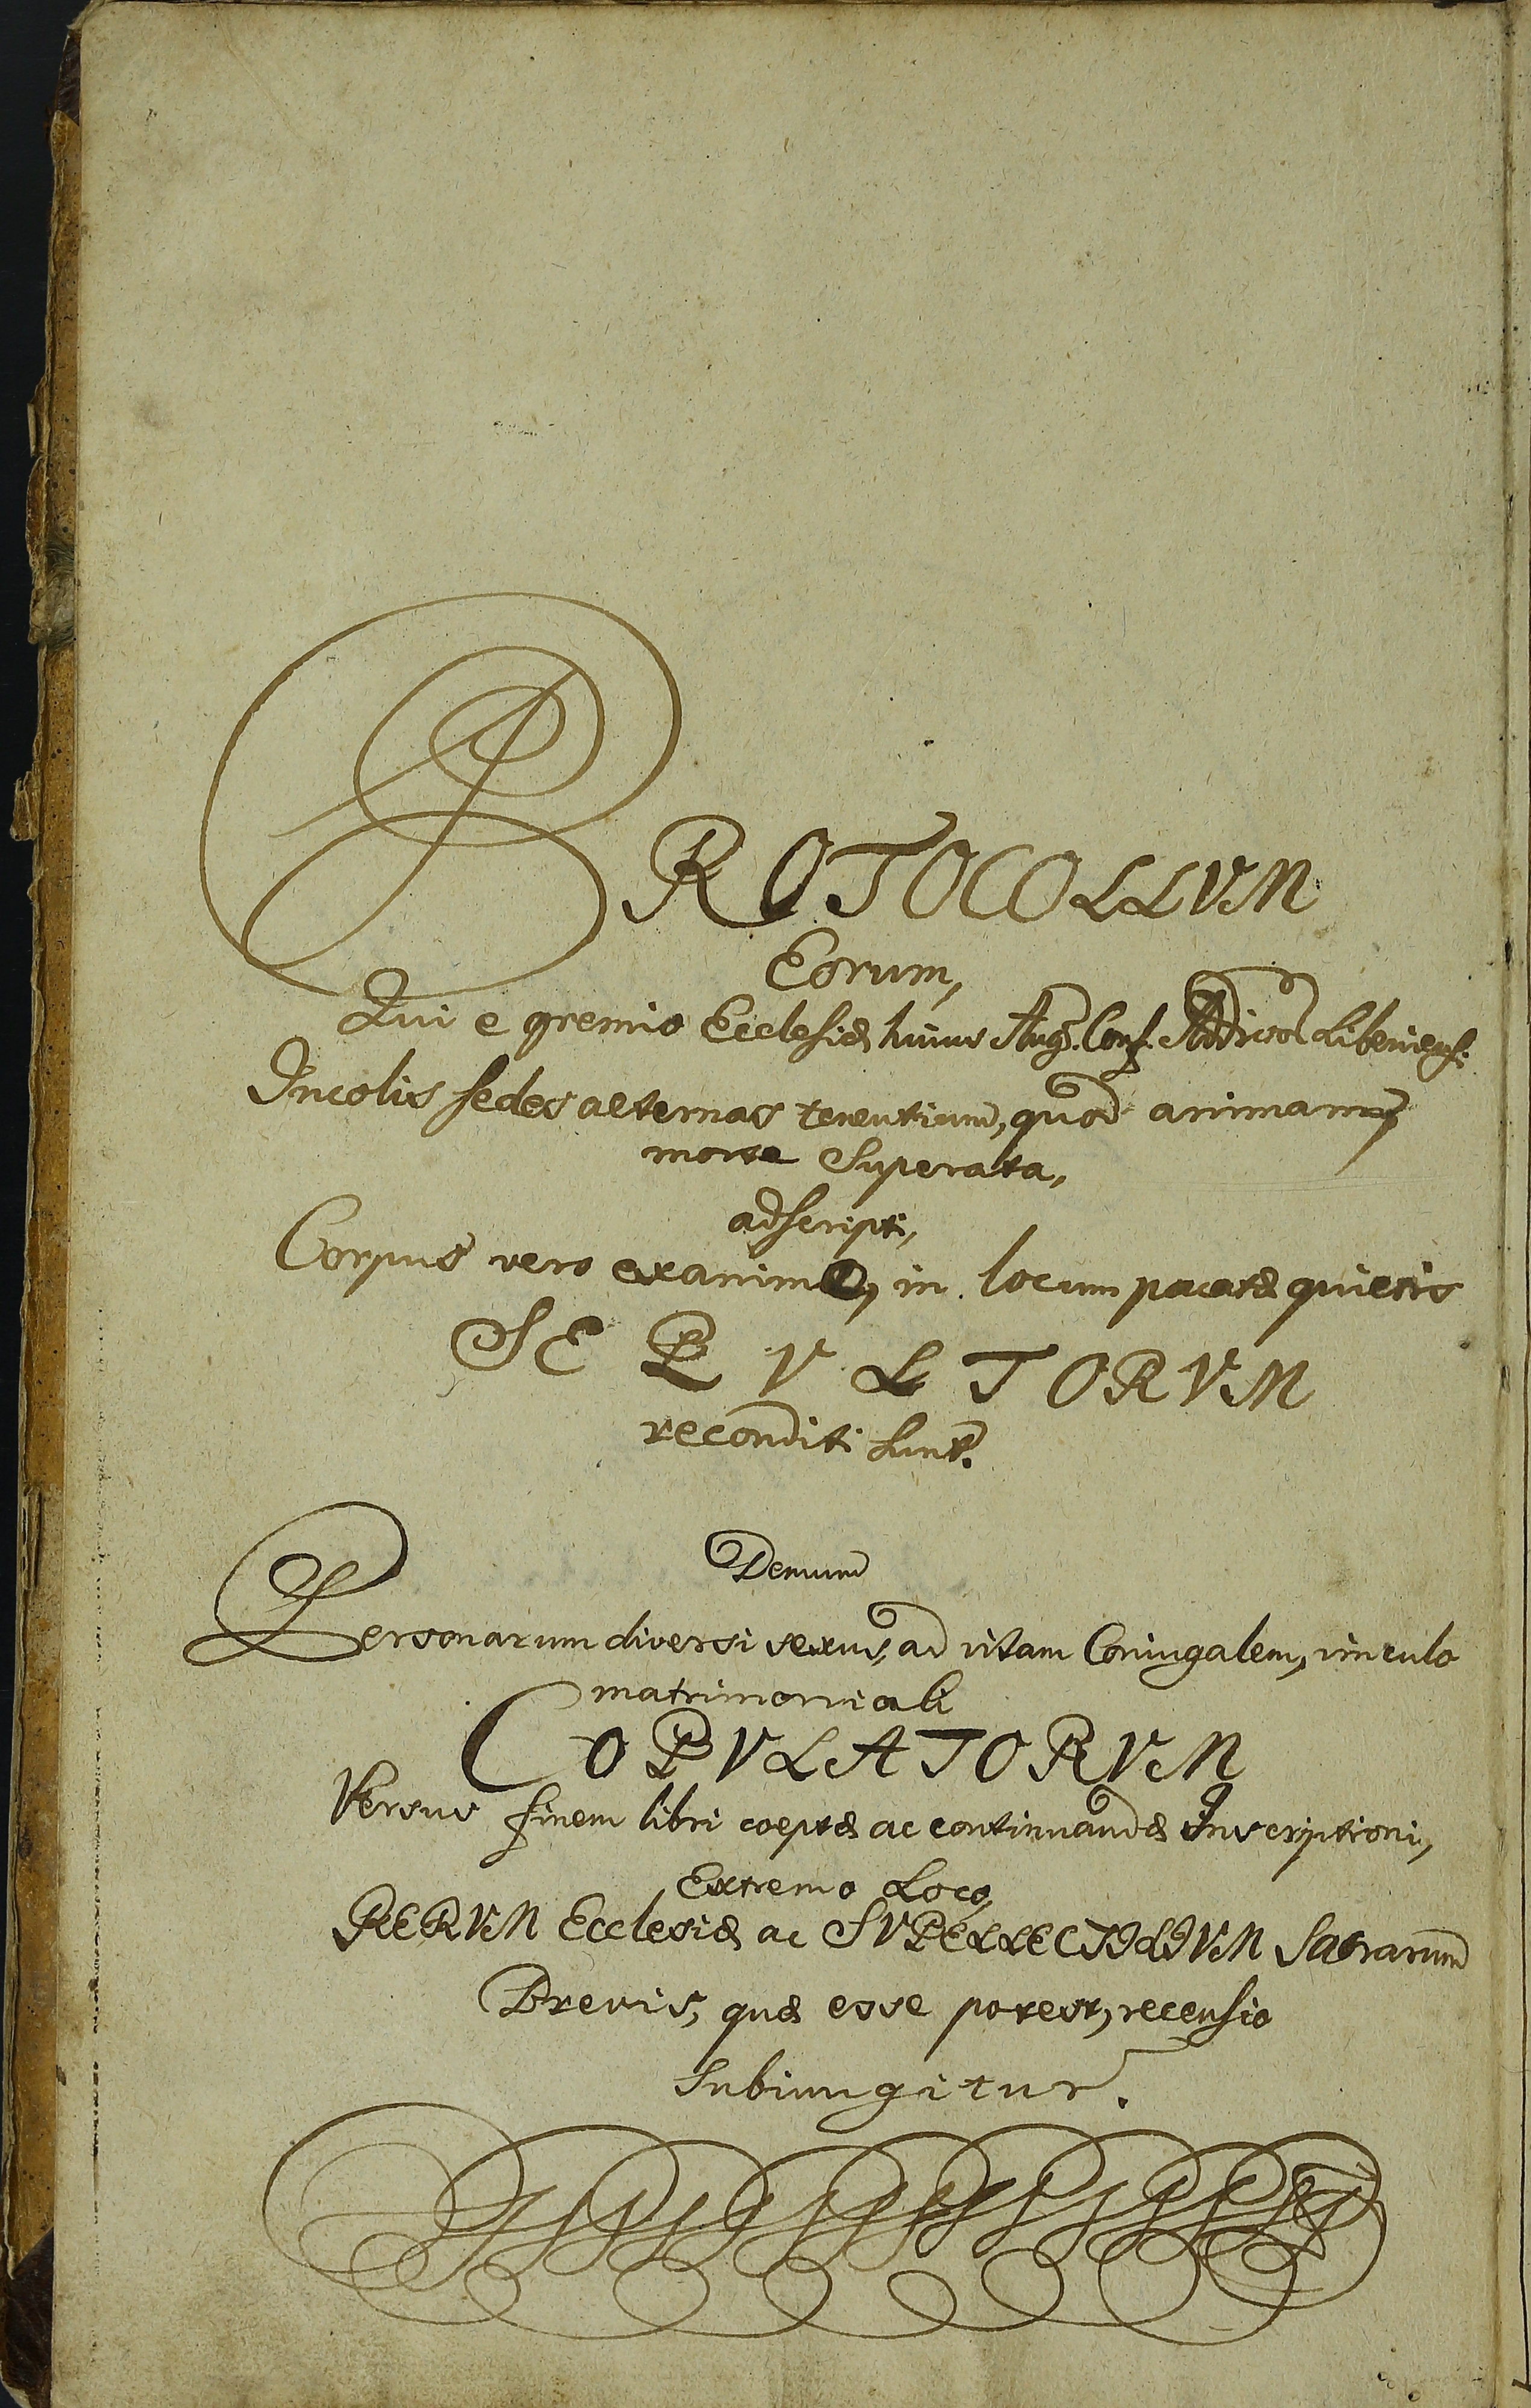 PROTOCOLLVM
Eorum,
Qui e gremio Ecclesiæ huius Aug. Conf. Addictæ Libeniens:
Incolis sedes aeternas tenentium, quod animam
morte Superata,
adscripti,
Corpus vero exanime, in locum pacatæ quietis
SEPVLTORVM
reconditi sunt.
Demum
Personarum diversi sexus, ad vitam Coniugalem, vinculo
matrimoniali
COPVLATORVM
Versus finem libri coeptæ ac continuandæ Inscriptioni,
Extremo Loco,
RERVM Ecclesiæ ac SVPELLECTILIVM Sacrarum
Brevis, quæ esse potest, recensio
Subiungitur.